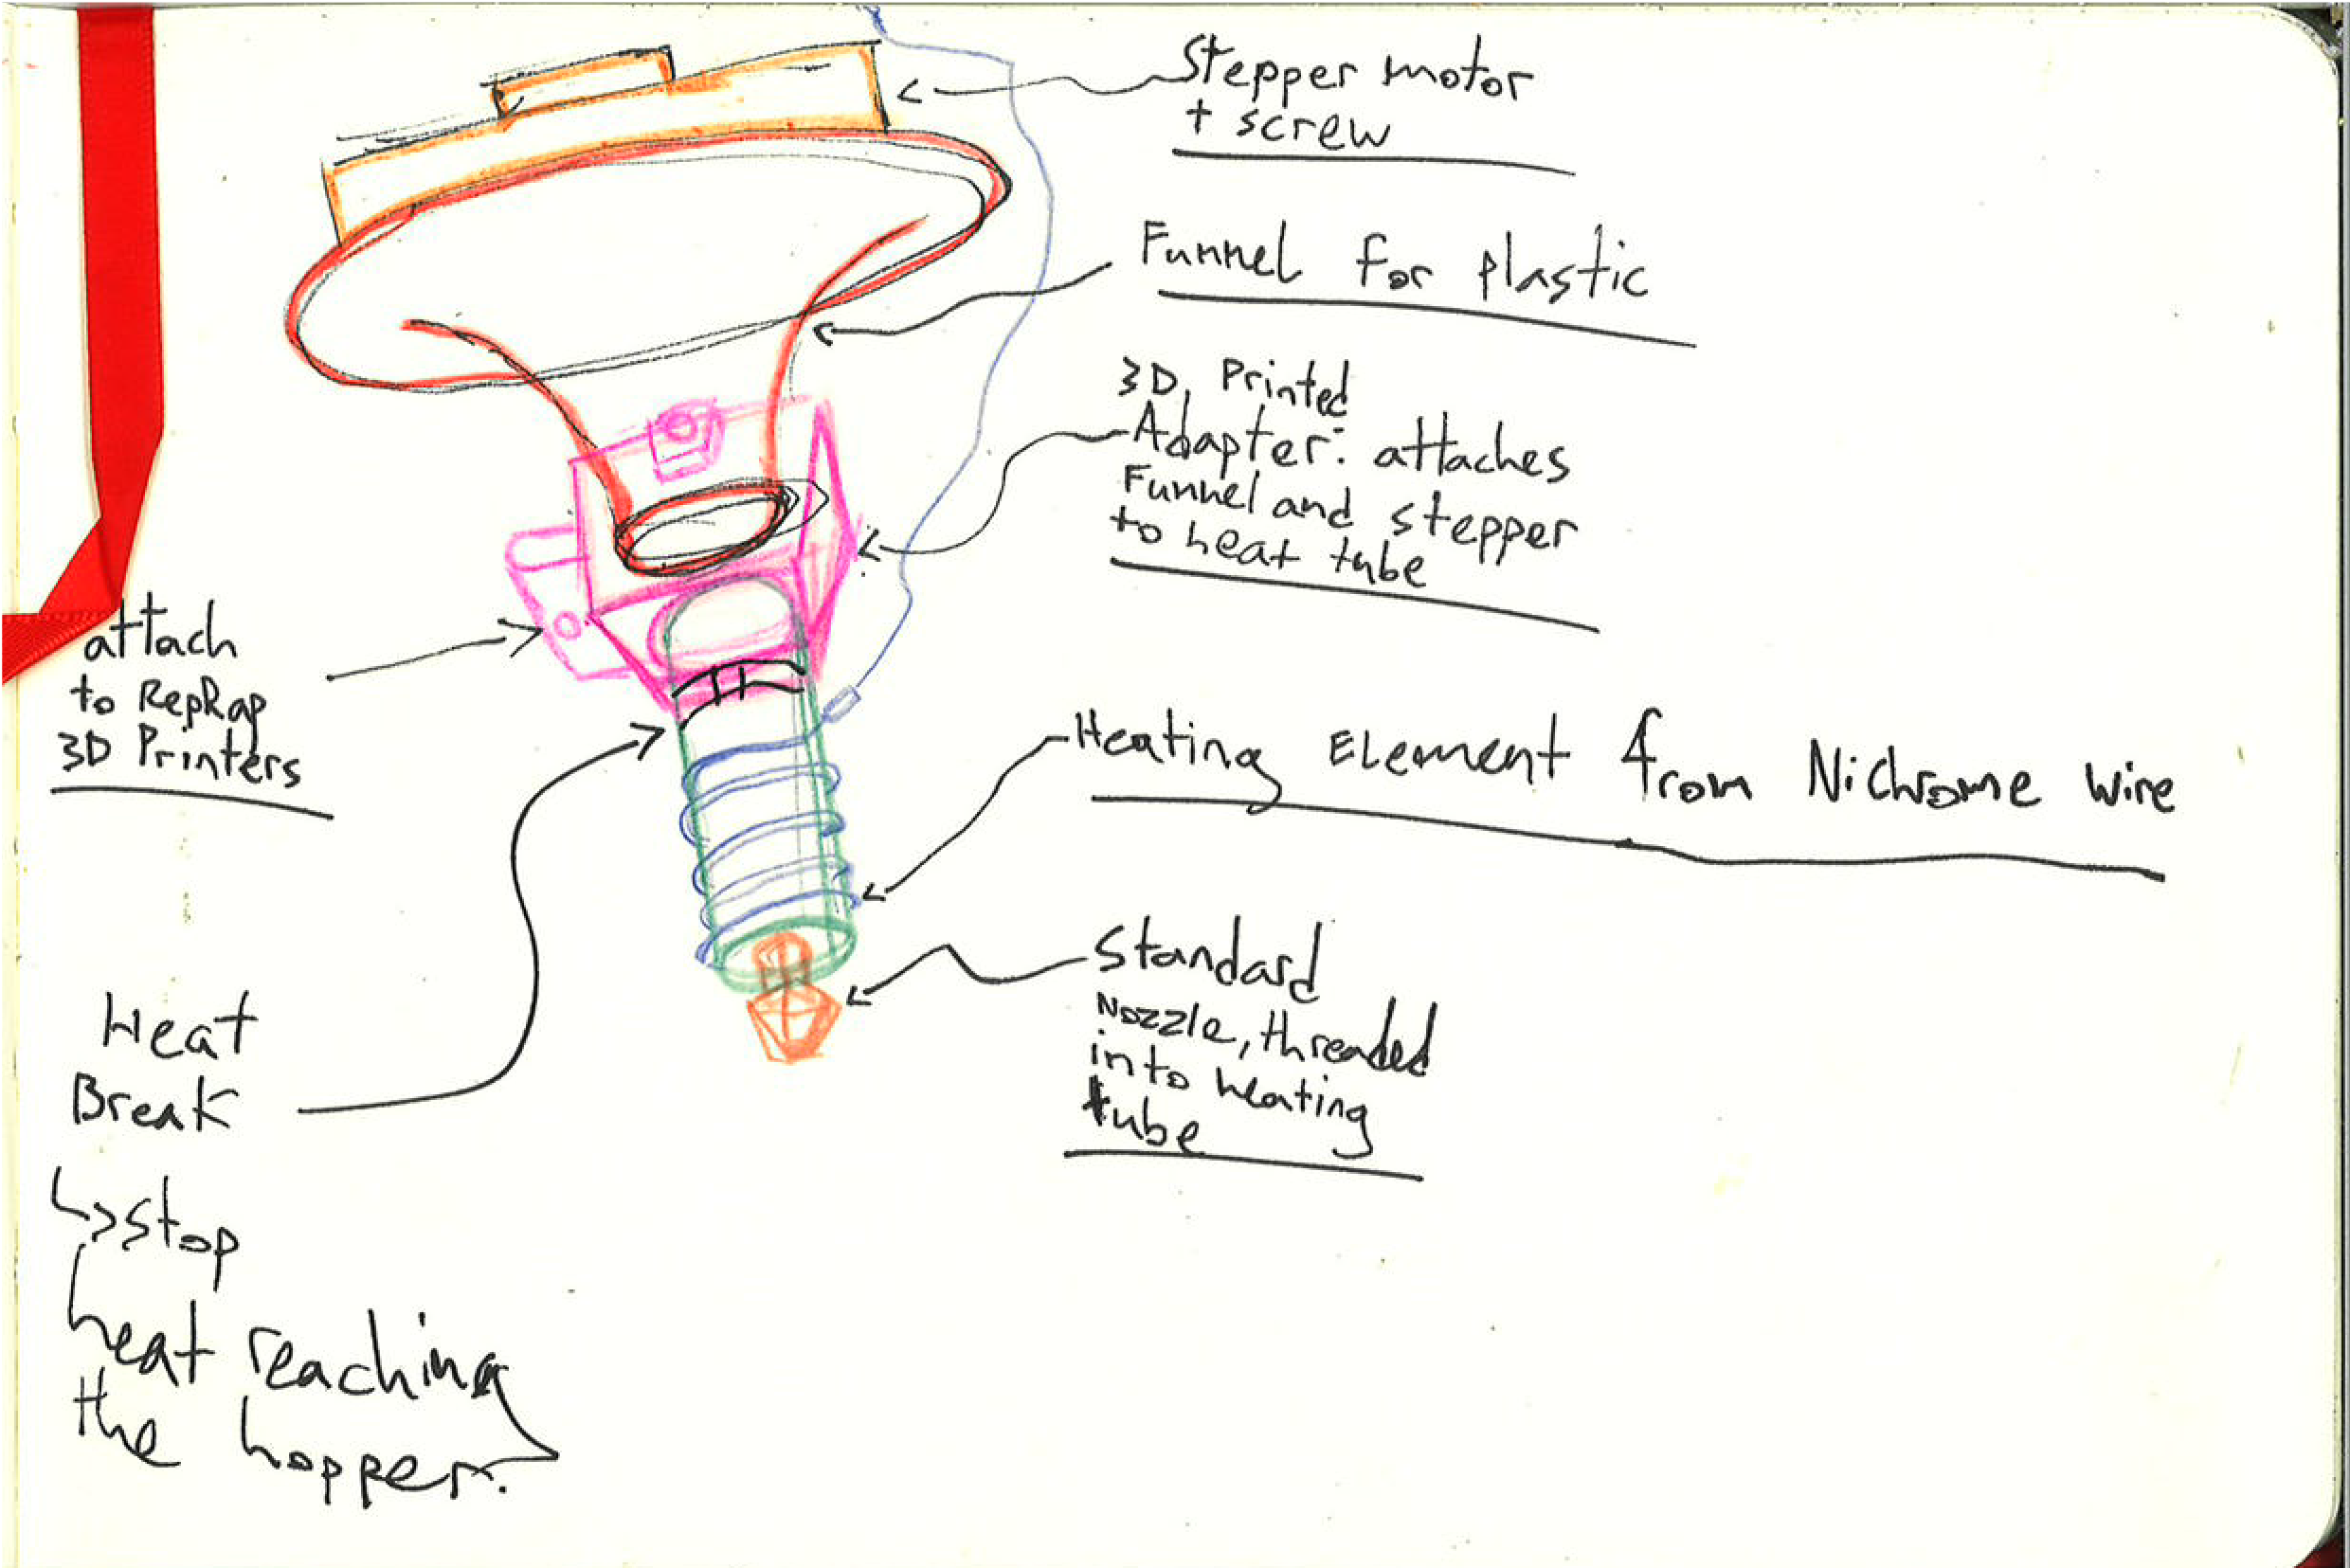 Stepper motor
+ screw
Funnel for plastic
3D Printed
Adapter: attaches
Funnel and stepper
to heat tube
attach
to RepRap
3D Printers
Heating Element from Nichrome wire
Standard
Nozzle, threaded
into heating
tube
Heat
Break
↳ stop
heat reaching
the hopper.